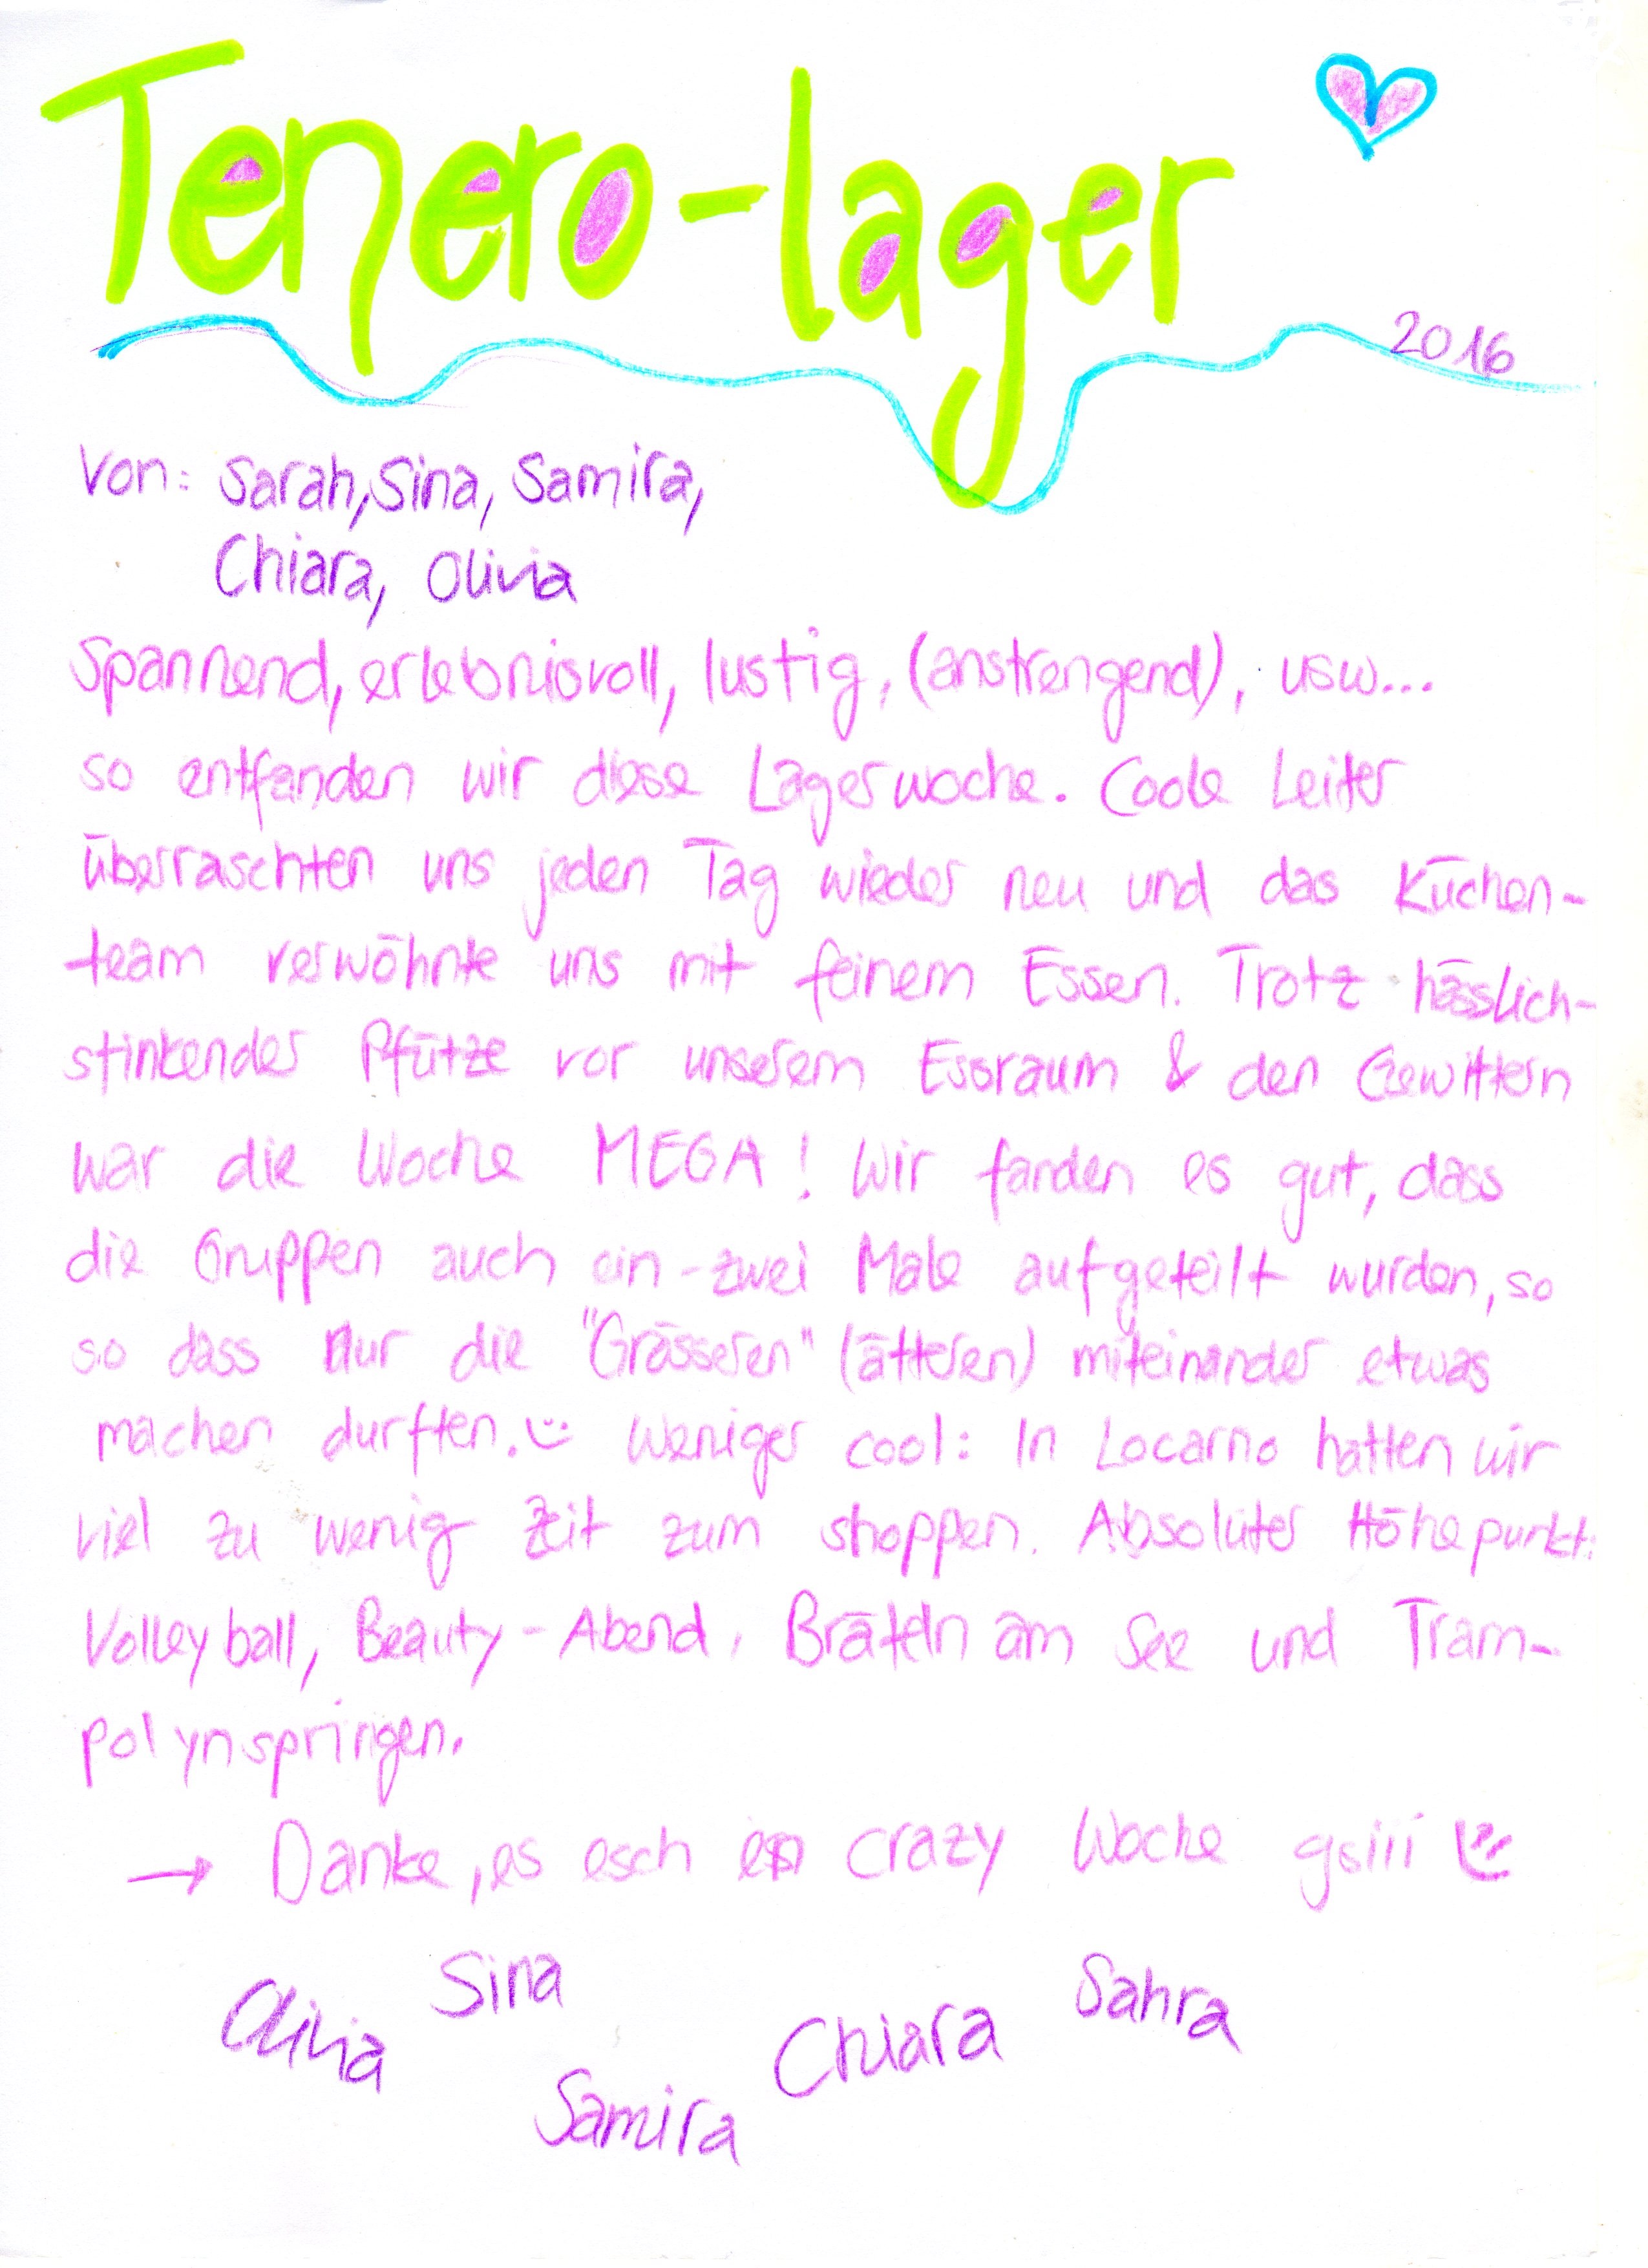 Tenero-lager
2016
Von: Sarah, Sina, Samira,
Chiara, Olivia
Spannend, erlebnisvoll, lustig, (anstrengend), usw...
so entfanden wir diese Lagerwoche. Coole Leiter
überraschten uns jeden Tag wieder neu und das Küchen-
team verwöhnte uns mit feinem Essen. Trotz hässlich-
stinkender Pfütze vor unserem Essraum & den Gewittern
war die Woche MEGA! Wir fanden es gut, dass
die Gruppen auch ein-zwei Male aufgeteilt wurden, so
so dass nur die "Grösseren" (älteren) miteinander etwas
machen durften. Weniger cool: In Locarno hatten wir
viel zu wenig Zeit zum shoppen. Absoluter Höhepunkt:
Volleyball, Beauty-Abend, Bräteln am See und Tram-
polynspringen.
→ Danke, es esch en crazy Woche gsiii
Olivia Sina Samira Chiara Sahra